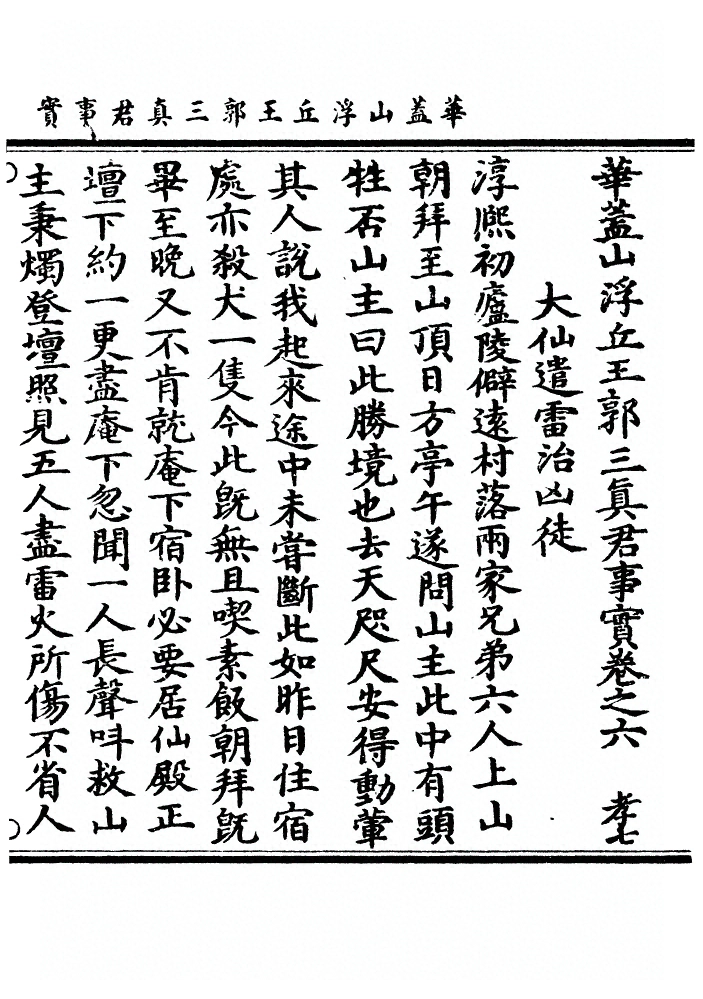 華蓋山浮丘王郭三真君事實
華蓋山浮丘王郭三眞君事實卷之六 孝七
大仙遣雷治凶徒
淳熈初廬陵僻逺村落兩家兄弟六人上山
朝拜至山頂日方亭午遂問山主此中有頭
牲否山主曰此勝境也去天咫尺安得動葷
其人說我起來途中未甞斷此如昨日住宿
處亦殺犬一隻今此旣無且喫素飯朝拜旣
畢至晚又不肯就庵下宿卧必要居仙殿正
壇下約一更盡庵下忽聞一人長聲呌救山
主秉燭登壇照見五人盡雷火所傷不省人